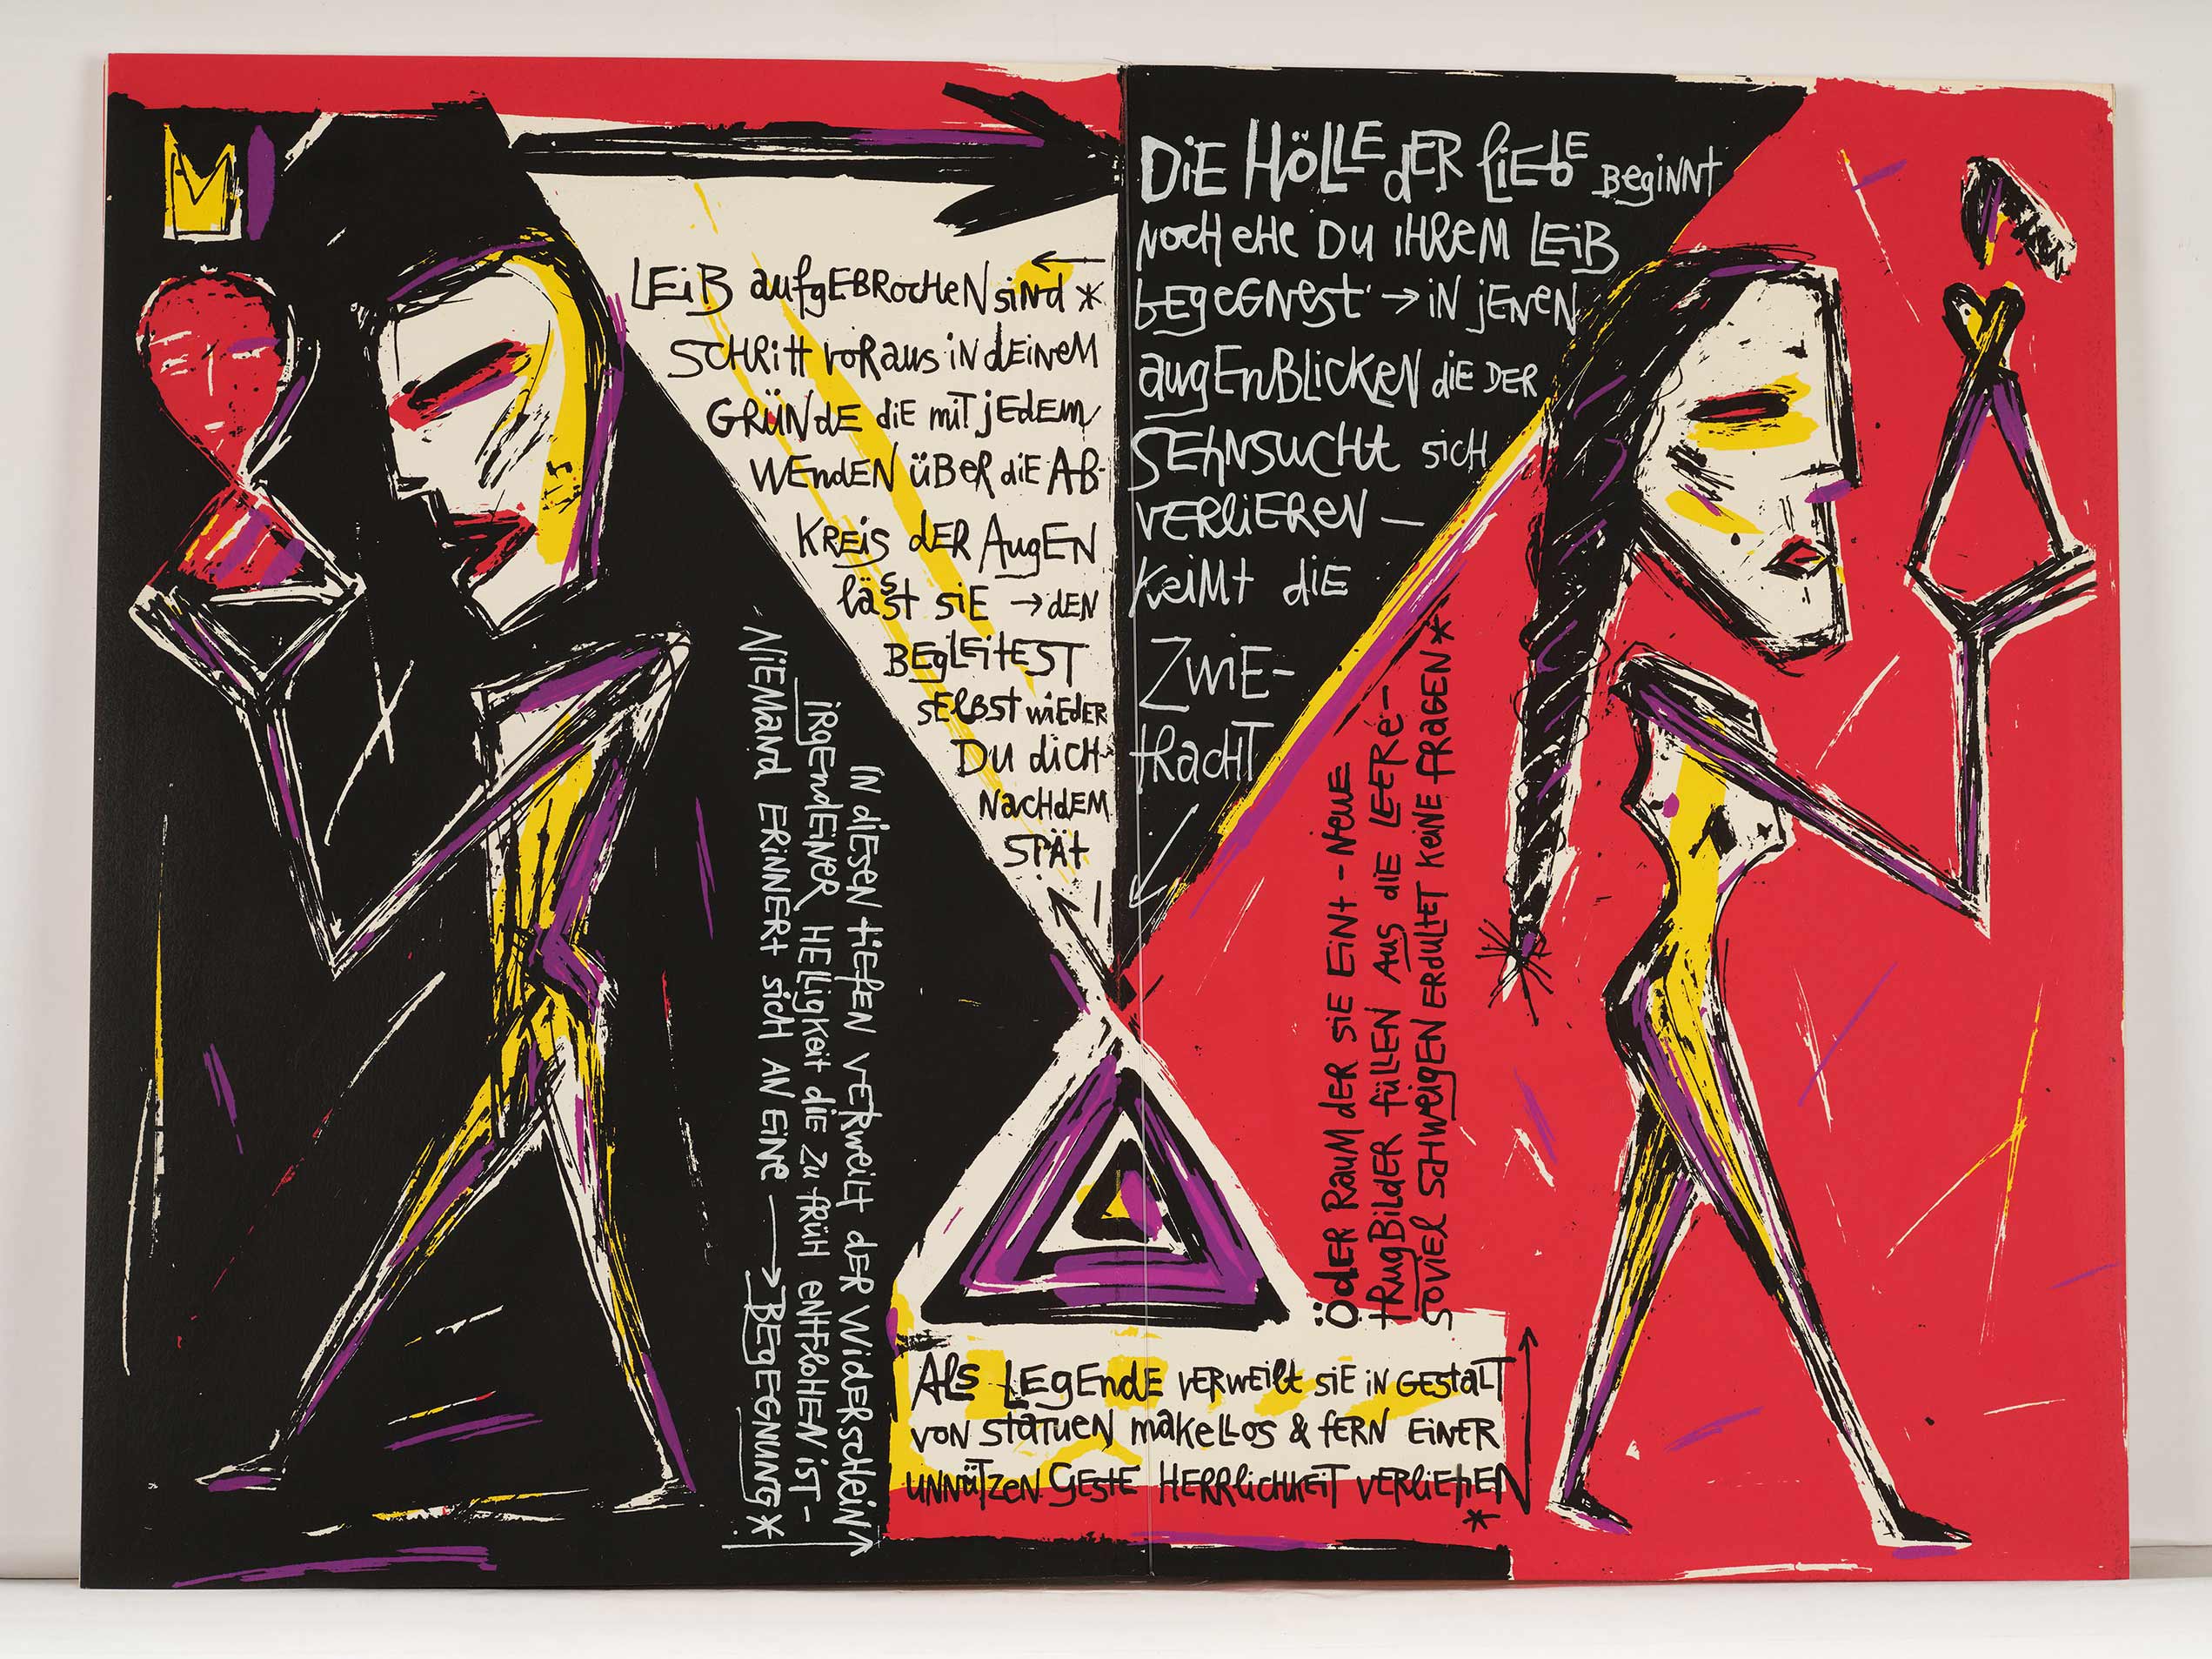 DiE HÖLLE dER liEbE BegiNNt
NocH eHe DU iHReM LEiB
bEgeGNest → iN jENeN
augEnBlickeN diE DER
SEhNSUCHt sicH
VERliEREN –
KeiMt diE
ZwiE-
tRacHT
SPÄt
NAcHdEM
DU dicH
sELBST wiEdER
BEglEitEST
läSSt siE → dEN
KREiS dER AugEN
WEndEN üBeR diE AB-
GRÜNdE diE miT jEdEm
SCHRitt voRaus iN dEiNeM
LEiB aufgEBRocHeN siNd *
iN diESEN tiEfEN VERwEilt dER WidERScHEiN
iRgEndEiNER HElligKeit diE zu fRÜH ENtfloHEN iST –
NiEMaNd ERiNNERt sicH AN EiNe → BEgEGNUNG *
Als LEgEndE VERwEilt siE iN GEstalt
voN StatuEN makeLLos & fERN EiNER
uNNützeN GEStE HERRlicHKeiT VERliEHEN *
ÖdER RauM dER siE EiNt – NeuE
tRugBildER füllEN Aus diE LEERE –
SoViEl ScHWeigEN ERdultEt KeiNE fRAgEN *